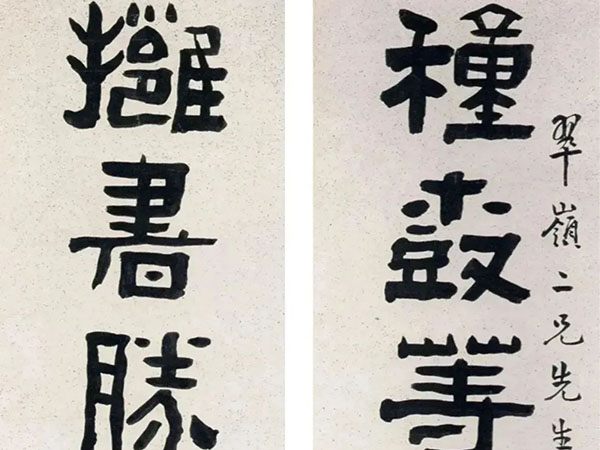 翠嶺二兄先生
種等
擁書勝